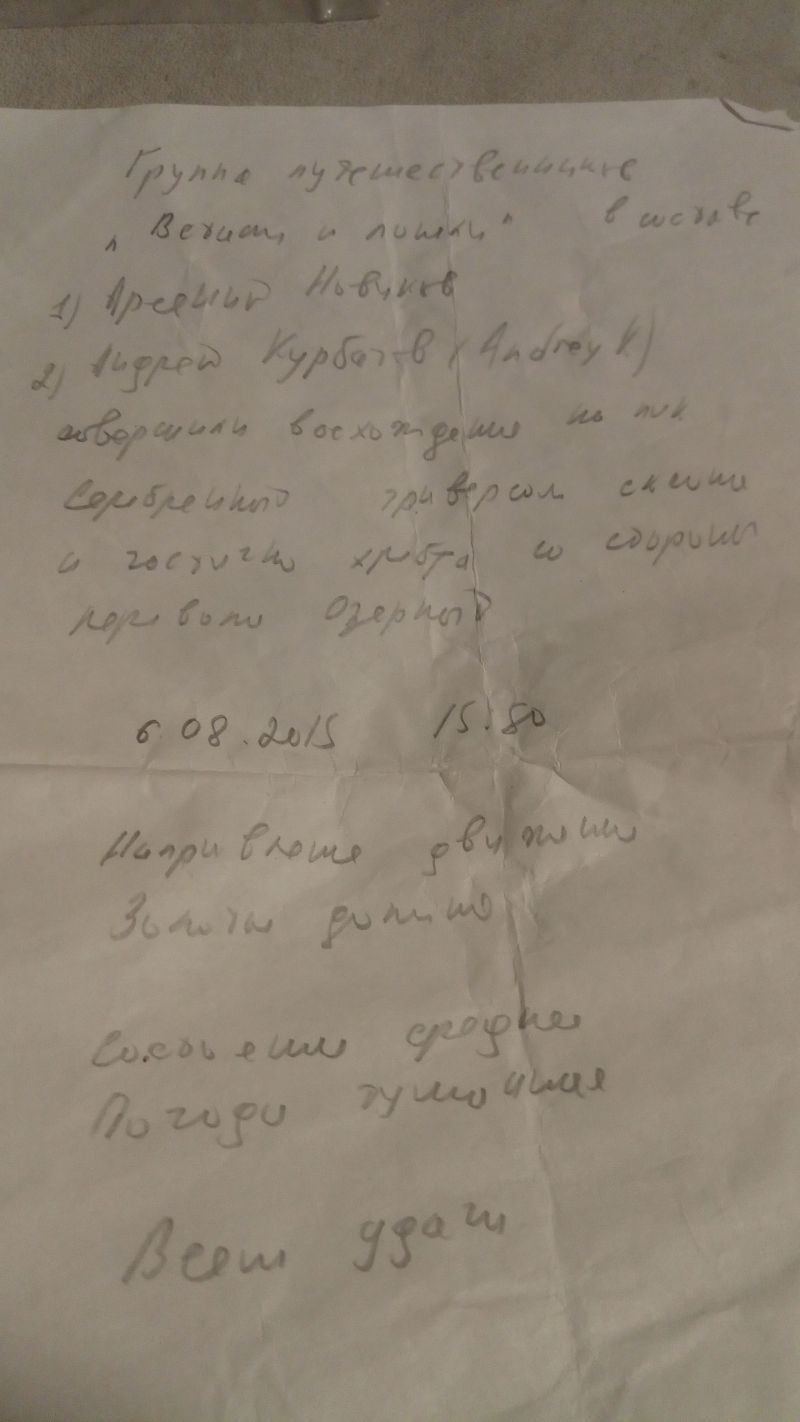 Группа путешественников
" и " в составе
1) Арсений Новиков
2) Андрей Курбатов (Andrey K)
совершили восхождение на пик
Серебренный траверсом склона
и частично хребта со стороны
перевала Озерный
6.08.2015 15:80
Направление движения
Золотая долина
Состояние среднее
Погода туманная
Всем удачи